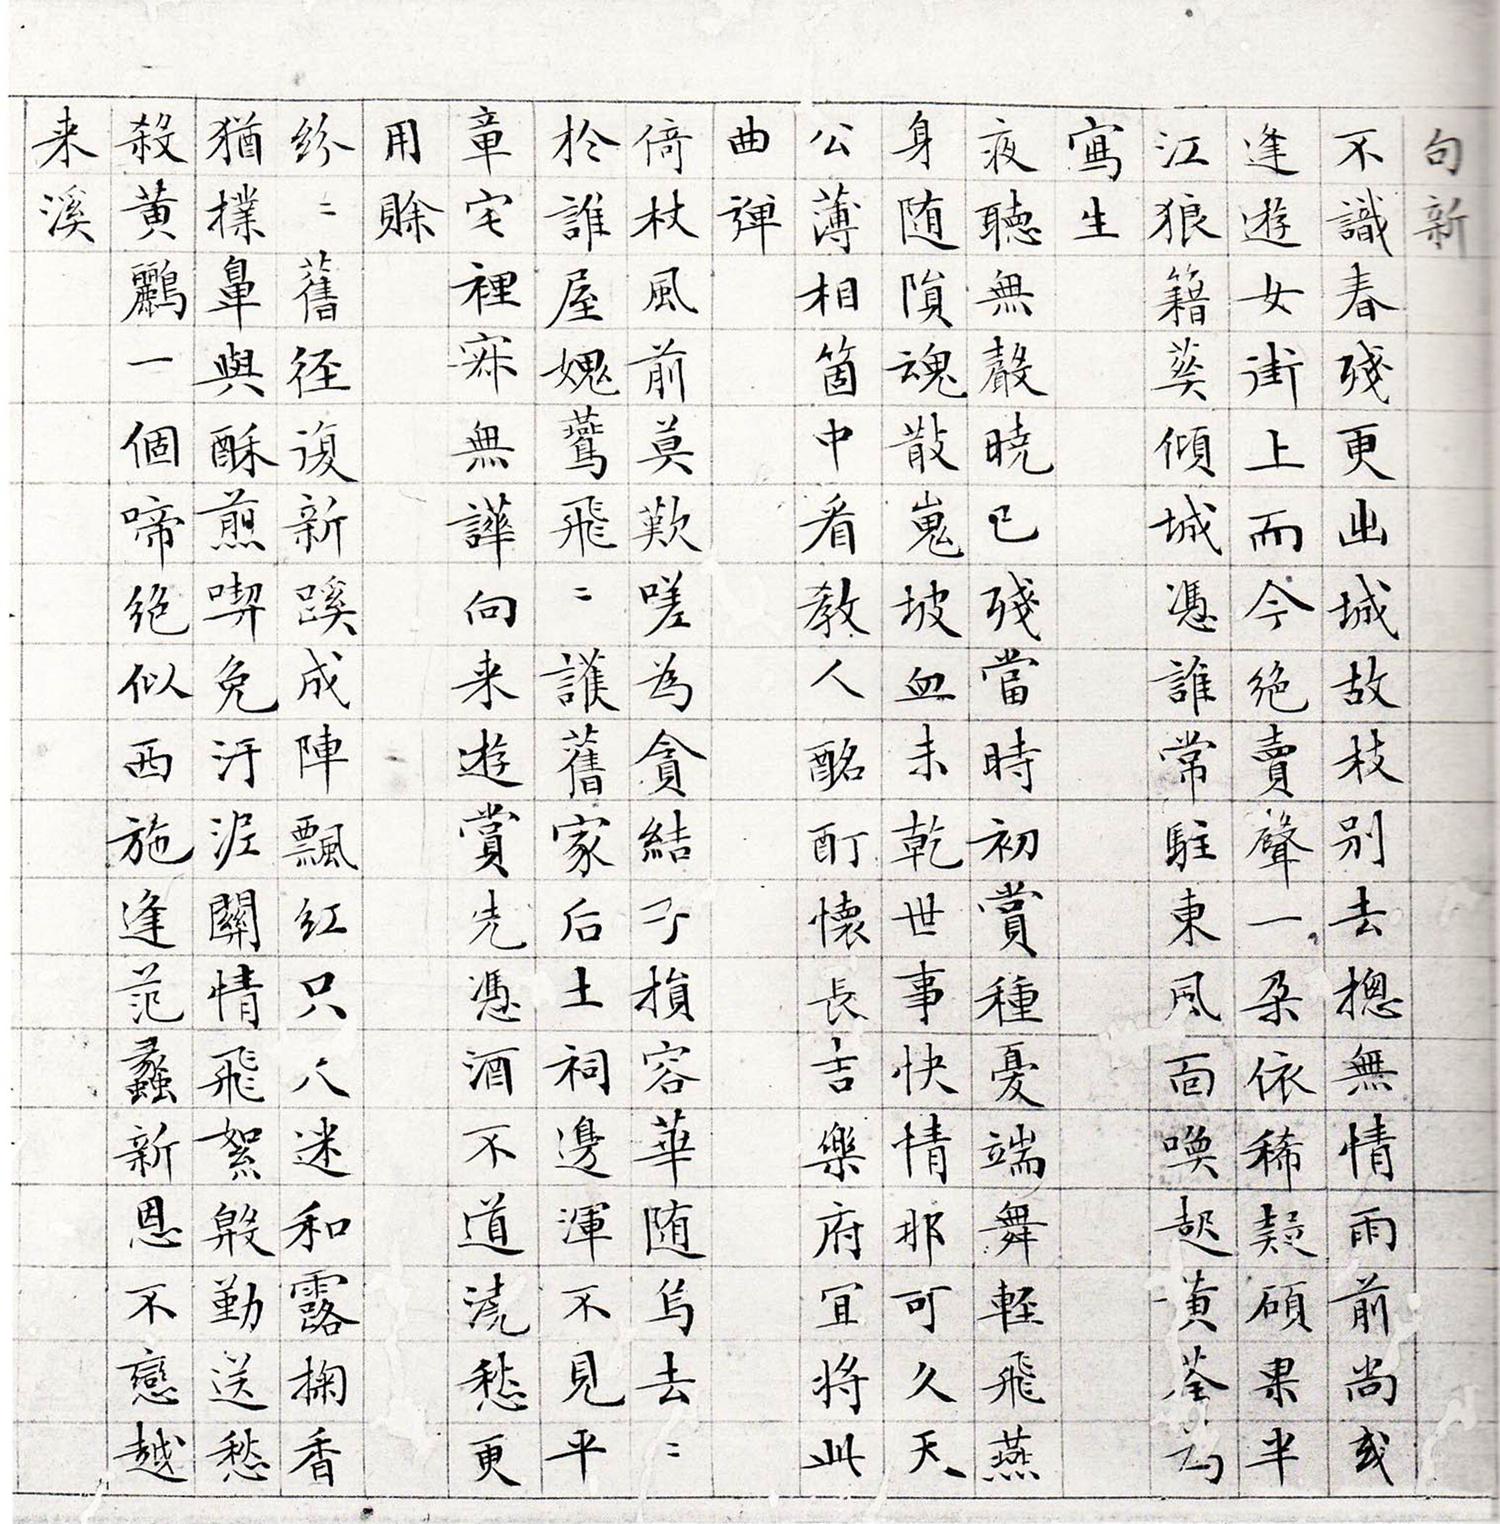 句新
不識春殘更出城故枝別去摠無情雨前尚或
逢遊女街上而今絕賣聲一朵依稀疑碩果半
江狼籍葬傾城憑誰常駐東風面喚起黃荃為
寫生
夜聽無聲曉已殘當時初賞種憂端舞輕飛燕
身随隕魂散嵬坡血未乾世事快情那可久天
公薄相箇中看教人酩酊懷長吉樂府宜將此
曲彈
倚杖風前莫歎嗟為貪結子損容華随烏去〻
於誰屋媿鷰飛〻護舊家后土祠邊渾不見平
章宅裡寂無譁向来遊賞先憑酒不道澆愁更
用賒
紛〻舊徑復新蹊成陣飄紅只迷和露掬香
猶撲鼻與酥煎喫免汙泥關情飛絮殷勤送愁
殺黃鸝一個啼絕似西施逢范蠡新恩不戀越
来溪